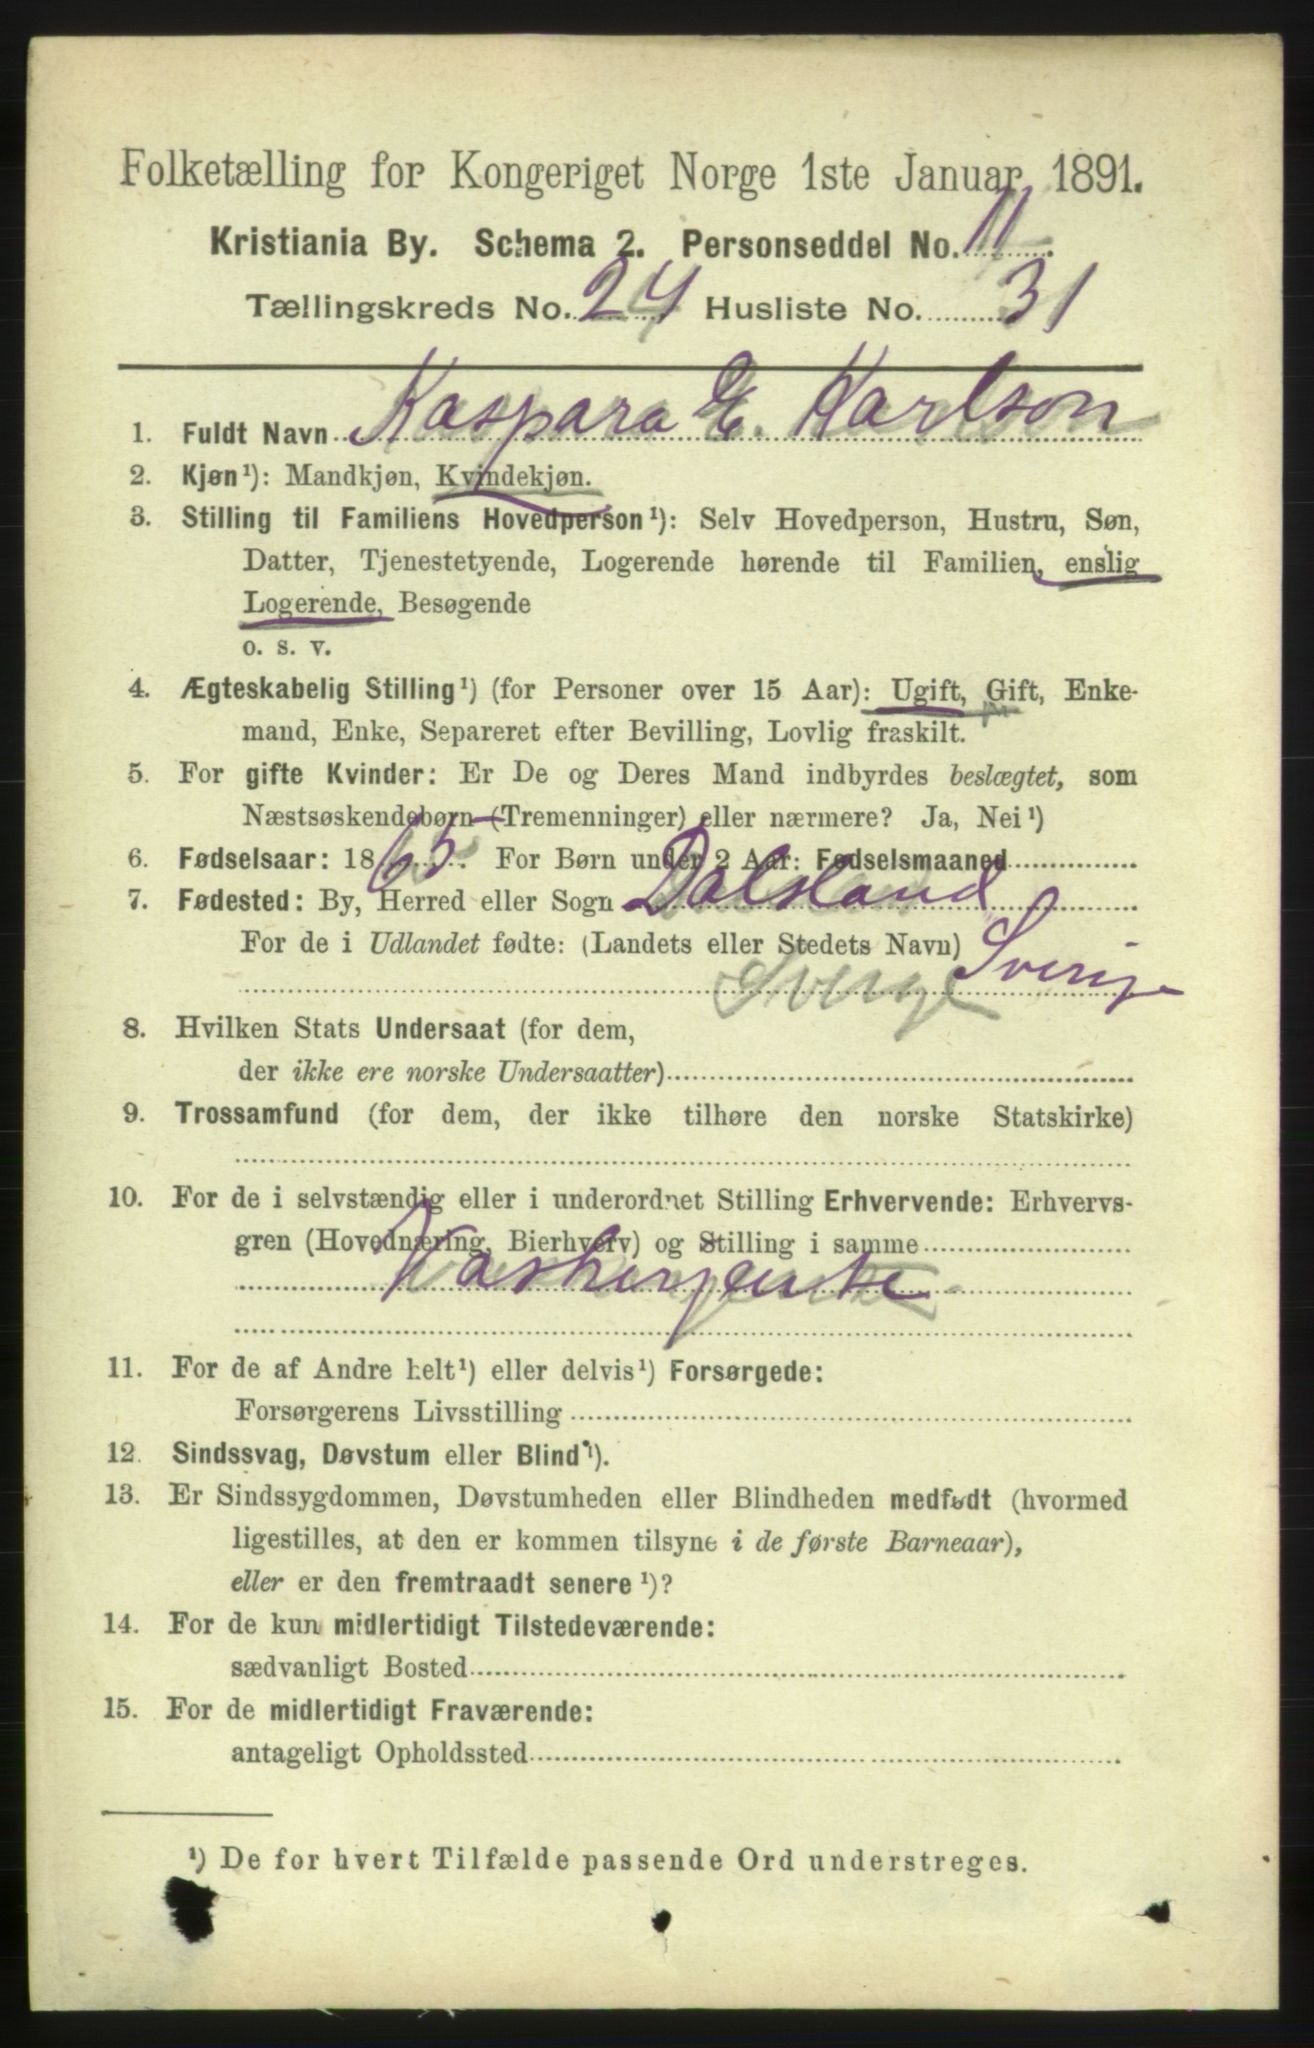 Folketælling for Kongeriget Norge 1ste Januar 1891.
Kristiania By. Schema 2. Personseddel No. 11.
Tællingskreds No. 24 Husliste No. 31
1. Fuldt Navn Kaspara E. Karlson
2. Kjøn¹): Mandkjøn, Kvindekjøn.
3. Stilling til Familiens Hovedperson¹): Selv Hovedperson, Hustru, Søn,
Datter, Tjenestetyende, Logerende hørende til Familien, enslig
Logerende, Besøgende
o. s. v.
4. Ægteskabelig Stilling¹) (for Personer over 15 Aar): Ugift, Gift, Enke-
mand, Enke, Separeret efter Bevilling, Lovlig fraskilt.
5. For gifte Kvinder: Er De og Deres Mand indbyrdes beslægtet, som
Næstsøskendebørn (Tremenninger) eller nærmere? Ja, Nei¹)
6. Fødselsaar: 1865. For Børn under 2 Aar: Fødselsmaaned
7. Fødested: By, Herred eller Sogn Dalsland
For de i Udlandet fødte: (Landets eller Stedets Navn) Sverige
Sverge
8. Hvilken Stats Undersaat (for dem,
der ikke ere norske Undersaatter)
9. Trossamfund (for dem, der ikke tilhøre den norske Statskirke)
10. For de i selvstændig eller i underordnet Stilling Erhvervende: Erhvervs-
gren (Hovednæring, Bierhverv) og Stilling i samme
Vaskerjente
11. For de af Andre helt¹) eller delvis¹) Forsørgede:
Forsørgerens Livsstilling
12. Sindssvag, Døvstum eller Blind¹).
13. Er Sindssygdommen, Døvstumheden eller Blindheden medfødt (hvormed
ligestilles, at den er kommen tilsyne i de første Barneaar),
eller er den fremtraadt senere¹)?
14. For de kun midlertidigt Tilstedeværende:
sædvanligt Bosted
15. For de midlertidigt Fraværende:
antageligt Opholdssted
¹) De for hvert Tilfælde passende Ord understreges.